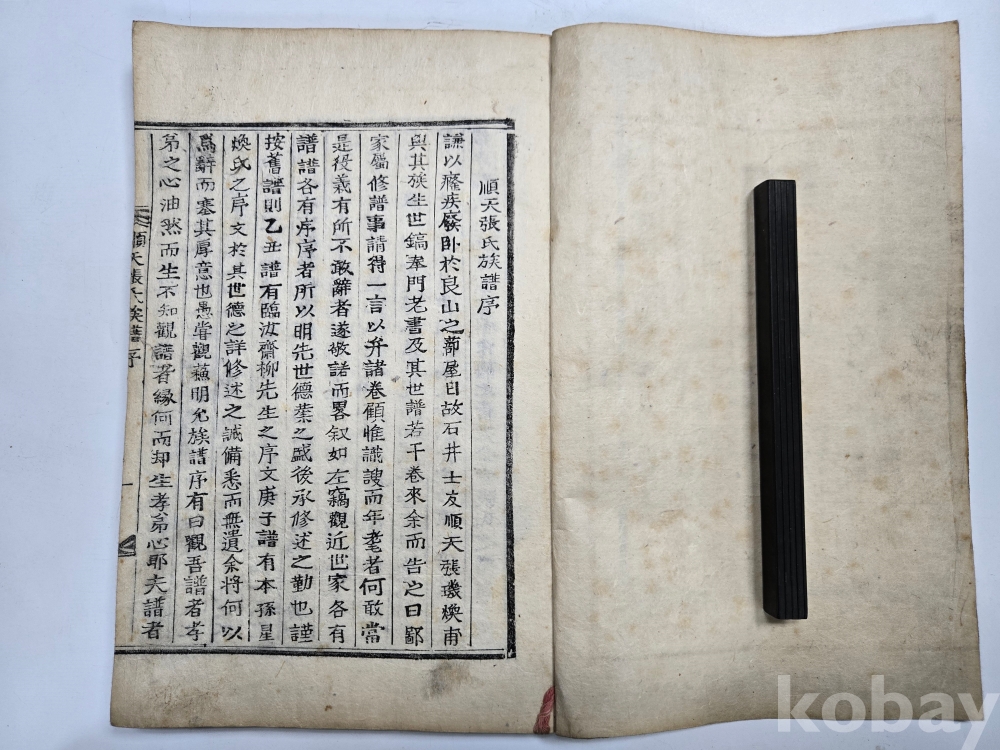 順天張氏族譜序
謙以癃疾廢卧於良山之蔀屋日故石井士友順天張璣煥甫
與其族生世鎬奉門老書及其世譜若干卷來余而告之曰鄙
家屬修譜事請得一言以弁諸卷顧惟識謏而年耄者何敢當
是役義有所不敢辭者遂敬諾而畧叙如左竊觀近世家各有
譜譜各有序序者所以明先世德業之盛後承修述之勤也謹
按舊譜則乙丑譜有臨汝齋柳先生之序文庚子譜有本孫星
煥氏之序文於其世德之詳修述之誠備悉而無遺余將何以
爲辭而塞其厚意也愚嘗觀蘇明允族譜序有曰觀吾譜者孝
弟之心油然而生不知觀譜者緣何而却生孝弟心耶夫譜者
順天張氏族譜序
一
kobay